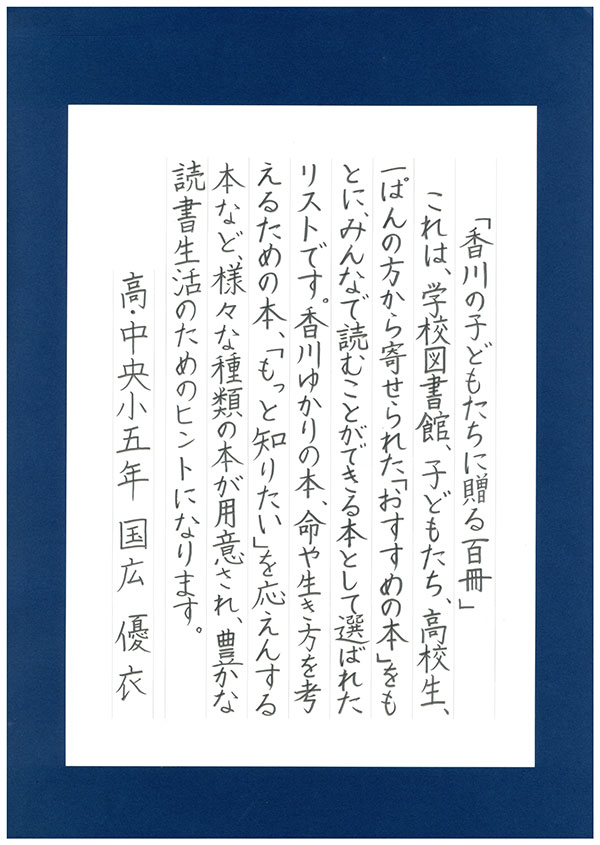 「香川の子どもたちに贈る百冊」
これは、学校図書館、子どもたち、高校生、
一ぱんの方から寄せられた「おすすめの本」をも
とに、みんなで読むことができる本として選ばれた
リストです。香川ゆかりの本、命や生き方を考
えるための本、「もっと知りたい」を応えんする
本など、様々な種類の本が用意され、豊かな
読書生活のためのヒントになります。
高・中央小五年 国広 優衣